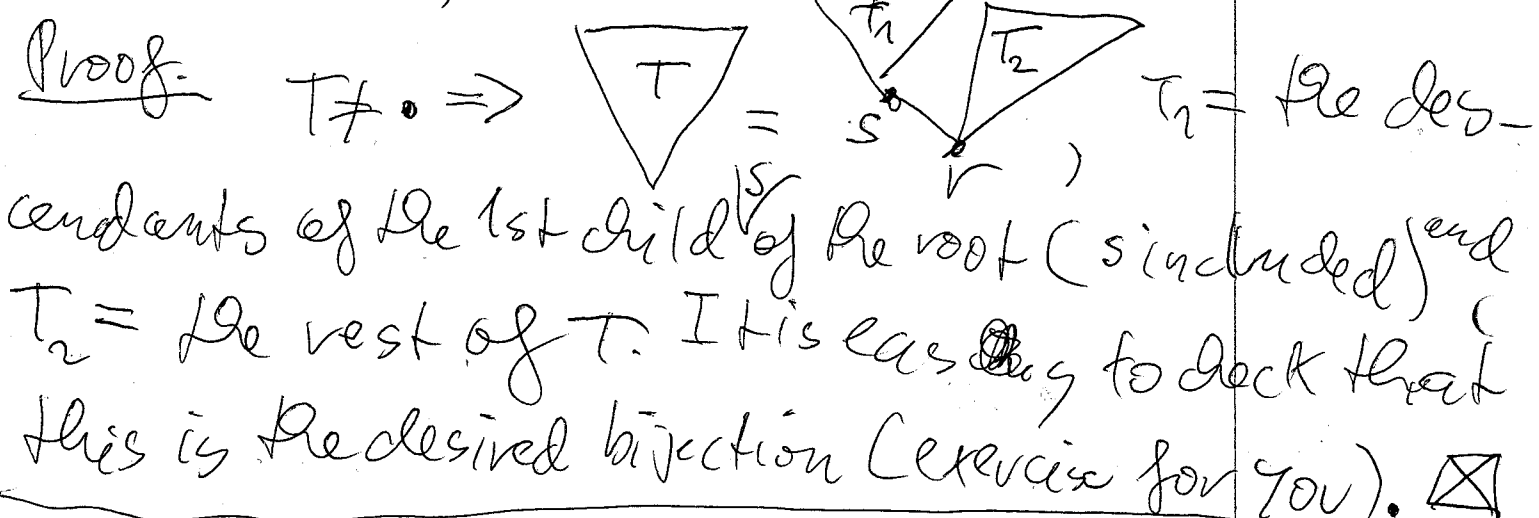 Proof. T ≠ • => T = T₁ s T₂ r , T₁ = the des-
cendants of the 1st child s of the root (s included) and
T₂ = the rest of T. It is easy to check that
this is the desired bijection (exercise for you). ⊠